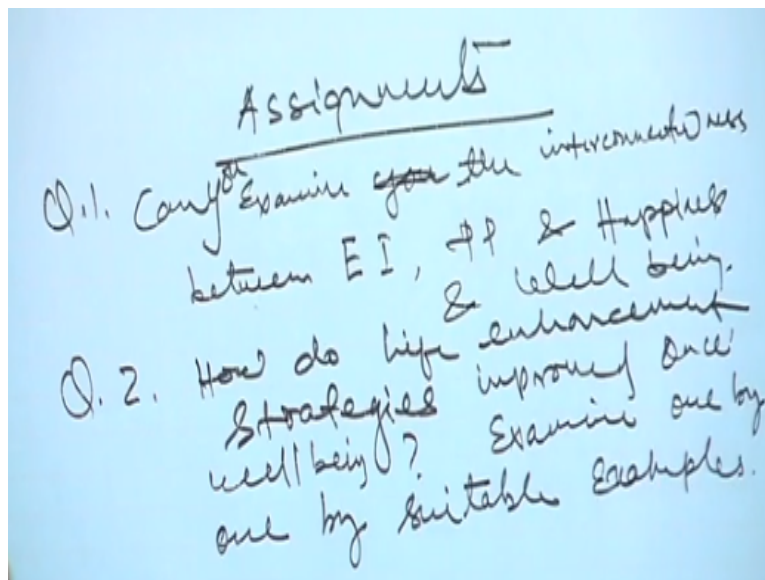 Assignments
Q.1. Can you Examine the interconnectedness
between EI, PP & Happiness
& Well being.
Q.2. How do life enhancement
strategies improved once'
well being? Examine one by
one by suitable Examples.